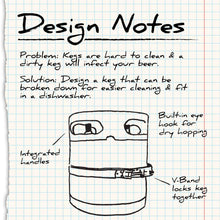 Design Notes
Problem: Kegs are hard to clean & a
dirty keg will infect your beer.
Solution: Design a keg that can be
broken down for easier cleaning & fit
in a dishwasher.
Built-in eye
hook for dry
hopping
Integrated
handles
V-Band
locks keg
together